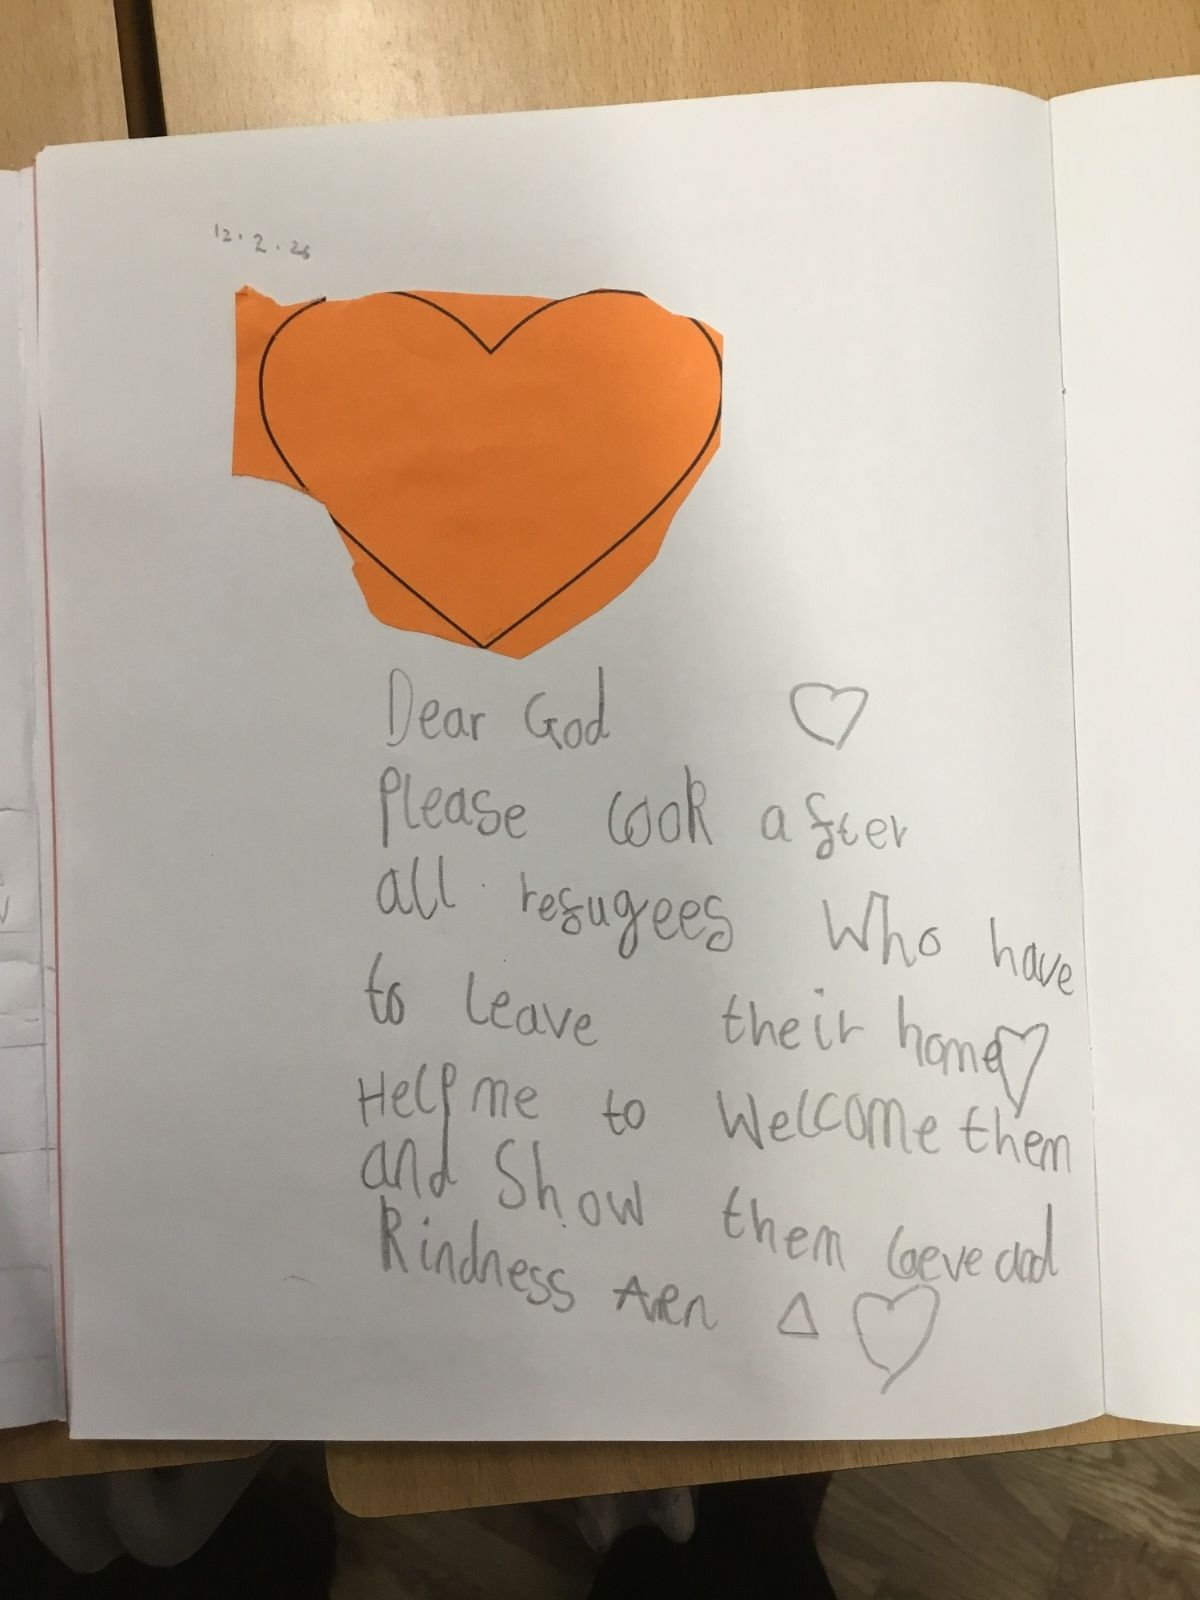 12.2.26
Dear God
Please look after
all refugees who have
to leave their home
Help me to welcome them
and Show them
Kindness